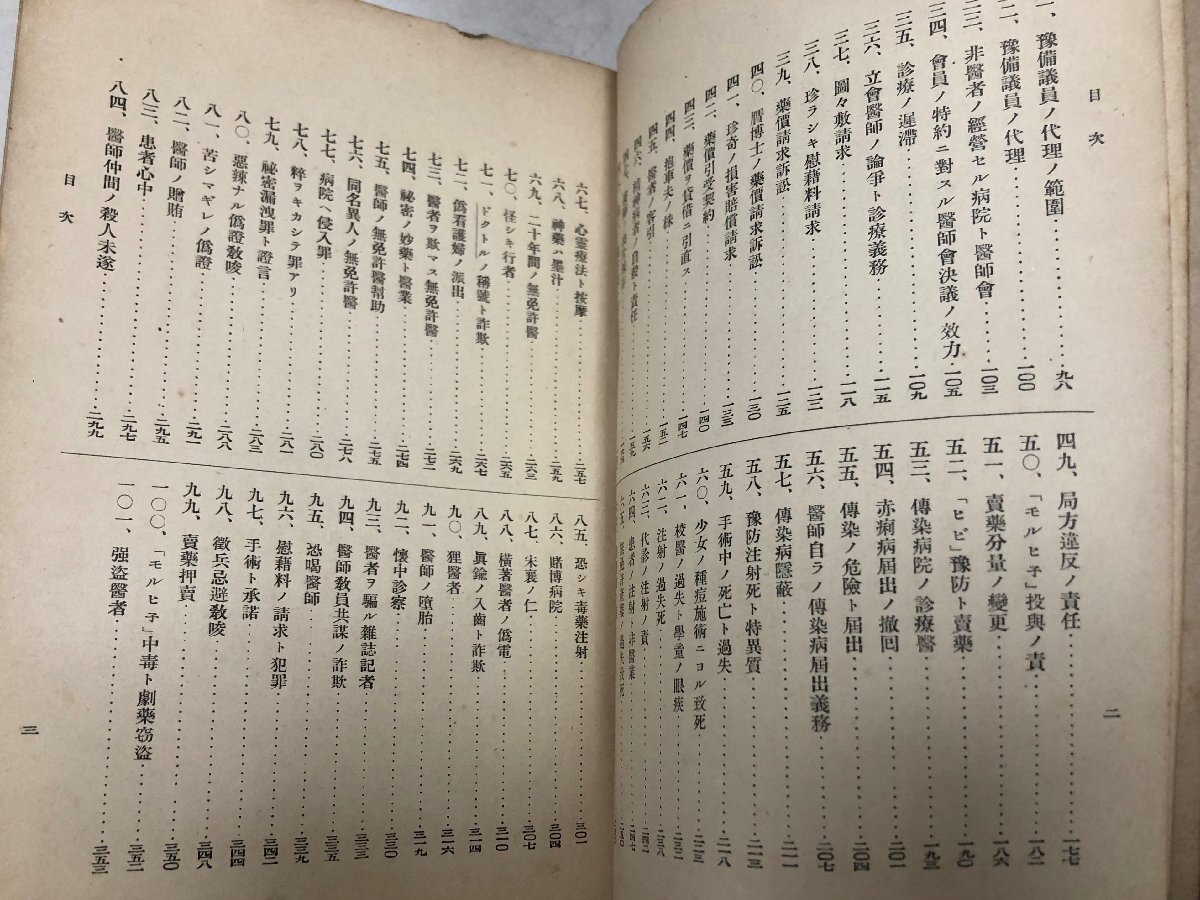 目次
一、豫備議員ノ代理ノ範圍……九八
二、豫備議員ノ代理……一〇〇
三三、非醫者ノ經營セル病院ト醫師會……一〇三
三四、會員ノ特約ニ對スル醫師會決議ノ效力……一〇五
三五、診療ノ遲滯……一〇九
三六、立會醫師ノ論爭ト診療義務……一一五
三七、圖々敷請求……一一八
三八、珍ラシキ慰藉料請求……一二二
三九、藥價請求訴訟……一二五
四〇、贋博士ノ藥價請求訴訟……一三〇
四一、珍奇ノ損害賠償請求……一三三
四二、藥價引受契約……一四〇
四三、藥價ヲ貸借ニ引直ス……一四七
四四、抱車夫ノ株……一五二
四五、醫者ノ客引……一五六
四六、精神病者ノ自殺ト責任……一五九
四九、局方違反ノ責任……一七七
五〇、「モルヒ子」投與ノ責……一八二
五一、賣藥分量ノ變更……一八六
五二、「ヒビ」豫防ト賣藥……一九〇
五三、傳染病院ノ診療醫……一九三
五四、赤痢病屆出ノ撤回……二〇一
五五、傳染ノ危險ト屆出……二〇四
五六、醫師自ラノ傳染病屆出義務……二〇七
五七、傳染病隱蔽……二一一
五八、豫防注射死ト特異質……二一三
五九、手術中ノ死亡ト過失……二一八
六〇、少女ノ種痘施術ニヨル致死……二二三
六一、校醫ノ過失ト學童ノ眼疾……二三二
六二、注射ノ過失死……二三八
六三、代診ノ注射ノ責……二四二
六四、患者ノ注射ト非醫業……二四七
二
六七、心靈療法ト按摩……二五七
六八、神藥ハ墨汁……二五九
六九、二十年間ノ無免許醫……二六三
七〇、怪シキ行者……二六五
七一、ドクトルノ稱號ト詐欺……二六七
七二、僞看護婦ノ派出……二六九
七三、醫者ヲ欺マス無免許醫……二七二
七四、祕密ノ妙藥ト醫業……二七四
七五、醫師ノ無免許醫幇助……二七五
七六、同名異人ノ無免許醫……二七八
七七、病院ヘ侵入罪……二八〇
七八、粹ヲキカシテ罪アリ……二八一
七九、祕密漏洩罪ト證言……二八三
八〇、惡辣ナル僞證敎唆……二八八
八一、苦シマギレノ僞證……二九一
八二、醫師ノ贈賄……二九五
八三、患者心中……二九七
八四、醫師仲間ノ殺人未遂……二九九
目次
八五、恐シキ毒藥注射……三〇一
八六、賭博病院……三〇四
八七、宋襄ノ仁……三〇七
八八、橫著醫者ノ僞電……三一〇
八九、眞鍮ノ入齒ト詐欺……三一四
九〇、狸醫者……三一六
九一、醫師ノ墮胎……三一九
九二、懷中診察……三三〇
九三、醫者ヲ騙ル雜誌記者……三三三
九四、醫師敎員共謀ノ詐欺……三三五
九五、恐喝醫師……三三九
九六、慰藉料ノ請求ト犯罪……三四二
九七、手術ト承諾……三四四
九八、徵兵忌避敎唆……三四八
九九、賣藥押賣……三五〇
一〇〇、「モルヒ子」中毒ト劇藥窃盜……三五二
一〇一、強盜醫者……三五三
三